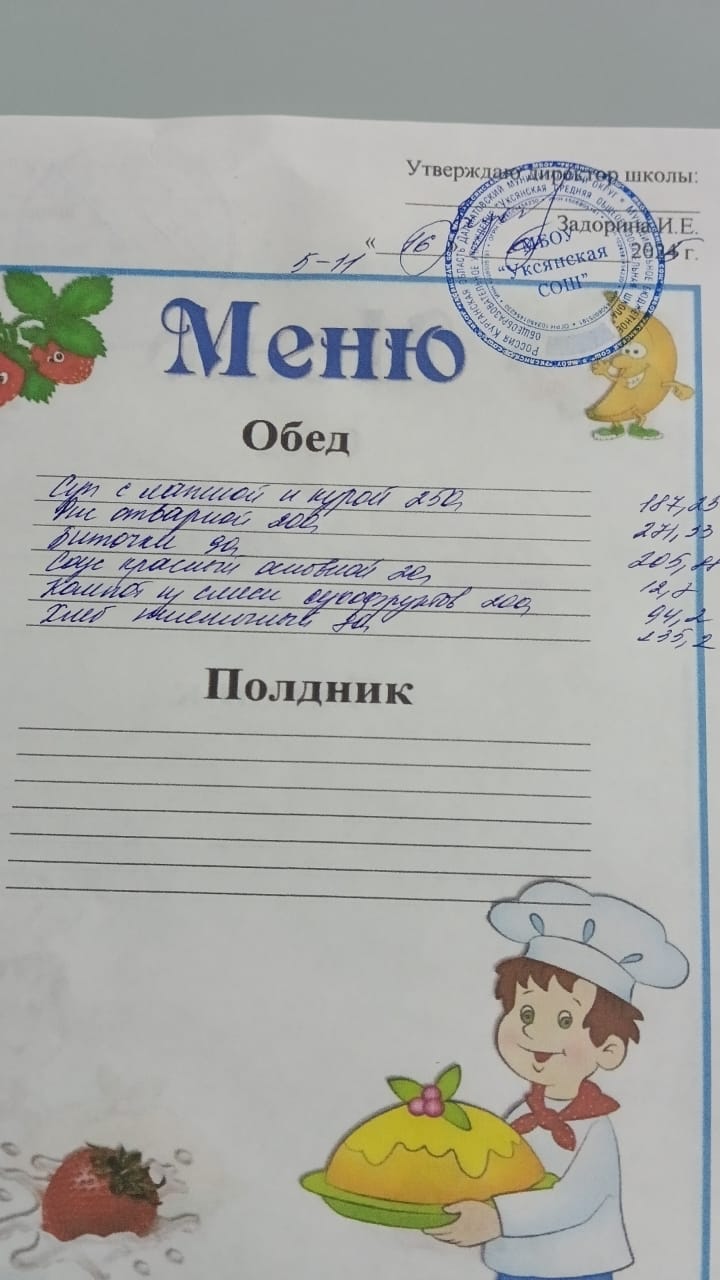 Утверждаю директор школы:
Задорина И.Е.
« 16 » 2025 г.
5-11
МБОУ
"Уксянская
СОШ"
Меню
Обед
Суп с лапшой и курой 250 187,25
Рис отварной 200 271,33
Биточки 90 205,
Соус красный основной 20 12,8
Компот из смеси сухофруктов 200 94,2
Хлеб пшеничный 235,2
Полдник